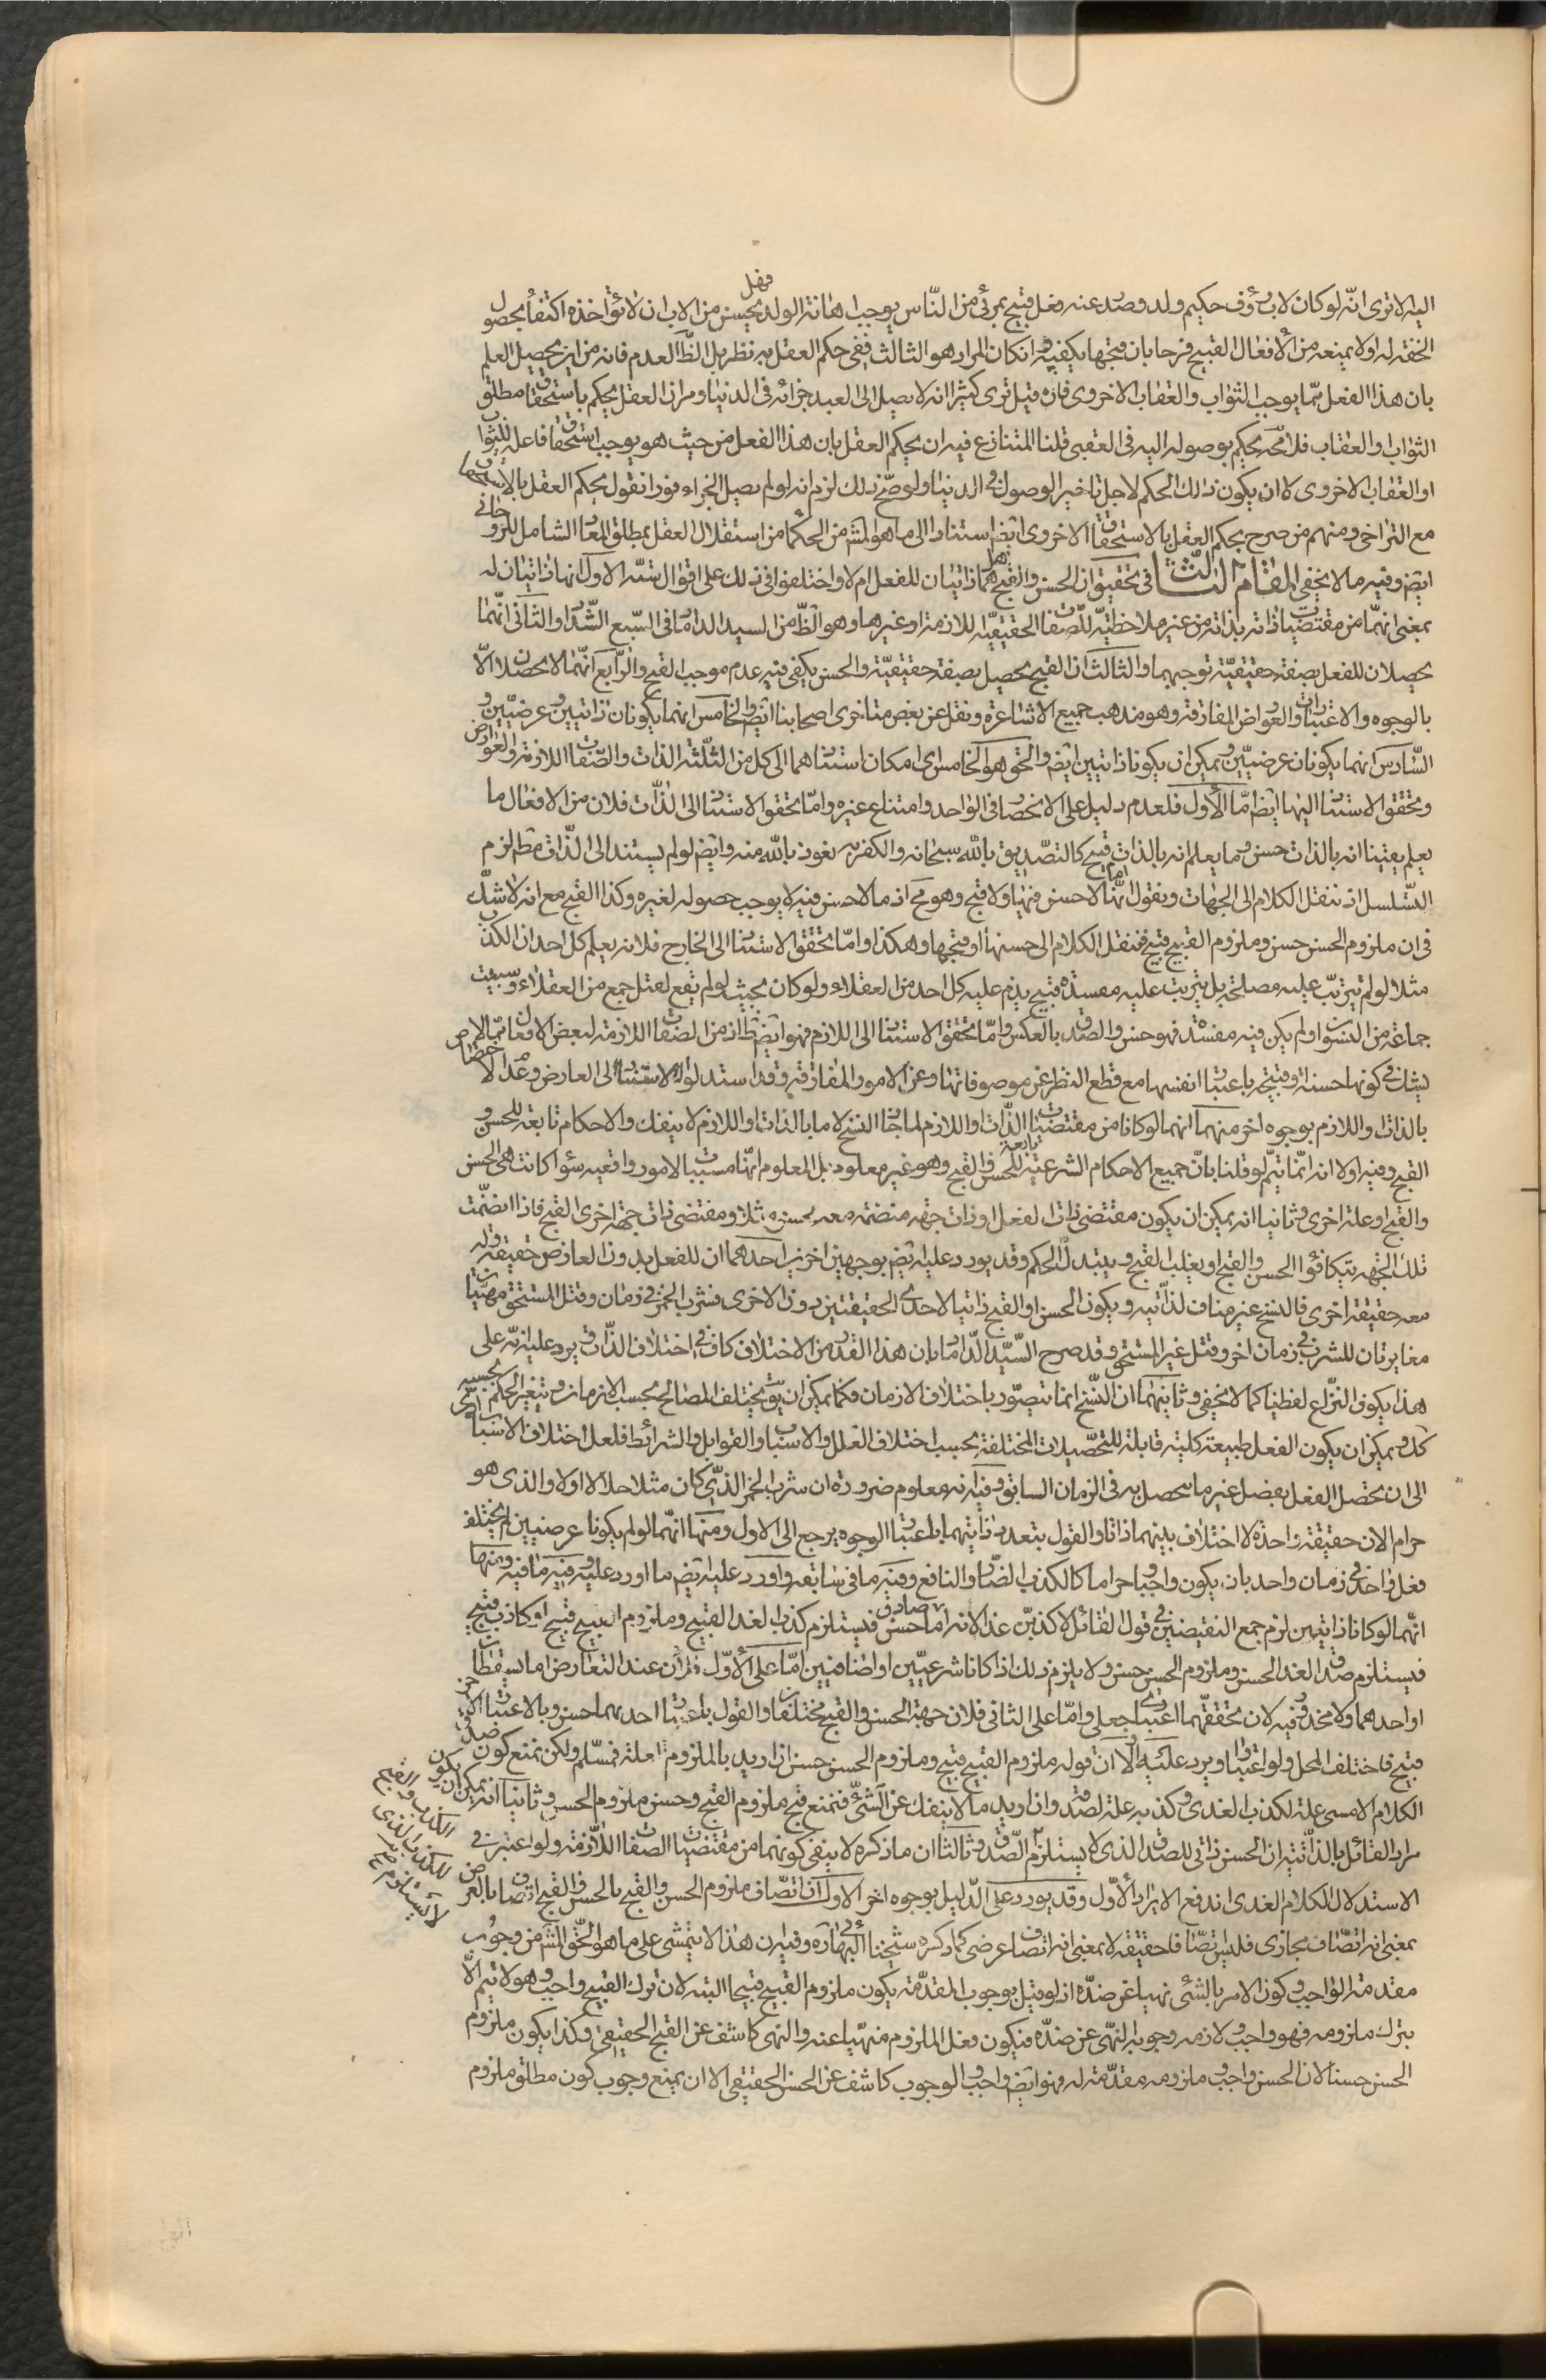 اليه الا ترى انّه لو كان لاب رؤف حكيم ولد وصدر عنه فعل قبيح بمرئى من النّاس يوجب اهانة الولد فهل يحسن من الاب ان لا يؤاخذه اكتفاء بحصول
الخفة له او لا يمنعه من الأفعال القبيح فرحا بان قبحها يكفيه وان كان المراد هو الثالث ففى حكم العقل به نظر بل الظّ العدم فانه من اين يحصل العلم
بان هذا الفعل ممّا يوجب الثواب والعقاب الاخروى فان قيل نرى كثيرا انه لا يصل الى العبد جزائه فى الدنيا ومر ان العقل يحكم باستحقاق مطلق
الثواب او العقاب فلا محة يحكم بوصوله اليه فى العقبى قلنا المتنازع فيه ان يحكم العقل بان هذا الفعل من حيث هو يوجب استحقاق فاعله للثواب
او العقاب الاخروى لا ان يكون ذلك الحكم لاجل تاخير الوصول فى الدنيا ولو صحّ ذلك لزم انه لو لم يصل الجزاء فورا نقول يحكم العقل بالاستحقاق
مع التراخى ومنهم من صرح بحكم العقل بالاستحقاق الاخروى ايضا استنادا الى ما هو المشهور من الحكما من استقلال العقل بمطلق المعاد الشامل للروحانى
ايضا وفيه ما لا يخفى المقام الثالث فى تحقيق ان الحسن والقبح هل هما ذاتيان للفعل ام لا واختلفوا فى ذلك على اقوال ستّة الاول انها ذاتيان له
بمعنى انهما من مقتضيات ذاته بذاته من غير ملاحظة للصفات الحقيقيّة اللازمة او غيرها وهو الظّ من السيد الداماد فى السّبع الشّداد والثانى انّهما
يحصلان للفعل بصفة حقيقيّة توجبهما والثالث ان القبح يحصل بصفة حقيقيّة والحسن يكفى فيه عدم موجب القبح والرّابع انّهما لا يحصلان الّا
بالوجوه والاعتبارات والعوارض المفارقة وهو مذهب جميع الاشاعرة ونقل عن بعض متاخرى اصحابنا ايضا والخامس انهما يكونان ذاتيين وعرضيّين و
السّادس انهما يكونان عرضيّين ويمكن ان يكونا ذاتيين ايضا والحق هو الخامس اى امكان استنادهما الى كل من الثلثة الذات والصفات اللازمة والعوارض
وتحقق الاستناد اليها ايضا امّا الأول فلعدم دليل على الانحصار فى الواحد وامتناع غيره وامّا تحقق الاستناد الى الذّات فلان من الافعال ما
يعلم يقينا انه بالذات حسن وما يعلم انه بالذات قبيح كالتصّديق بالله سبحانه والكفر به نعوذ بالله منه وايضا لو لم يستند الى الذّات مطلقا لزم
التسّلسل اذ ننقل الكلام الى الجهات ونقول انّها امّا لا حسن فيها ولا قبح وهو مح اذ ما لا حسن فيه لا يوجب حصوله لغيره وكذا القبح مع انه لا شكّ
فى ان ملزوم الحسن حسن وملزوم القبيح قبيح فننقل الكلام الى حسنها او قبحها وهكذا وامّا تحقق الاستناد الى الخارج فلانه يعلم كل احد ان الكذب
مثلا لو لم يترتب عليه مصلحة بل يترتب عليه مفسدة قبيح يذم عليه كل احد من العقلاء ولو كان بحيث لو لم تقع لقتل جمع من العقلاء وسبيت
جماعة من النسوان او لم يكن فيه مفسدة فهو حسن والصدق بالعكس وامّا تحقق الاستناد الى اللازم فهو ايضا ظ اذ من الصفات اللازمة لبعض الافعال ممّا لا
يشك فى كونها حسنة وقبيحة باعتبار انفسها مع قطع النظر عن موصوفاتها وعن الامور المفارقة وقد استدلوا للاستناد الى العارض وعدم الاختصاص
بالذات واللازم بوجوه اخر منهما انهما لو كانا من مقتضيات الذّات او اللازم لما جاز النسخ لان ما بالذات او اللازم لا ينفك والاحكام تابعة للحسن و
القبح وفيه اولا انه انّما يتمّ لو قلنا بانّ جميع الاحكام الشرعيّة تابعة للحسن والقبح وهو غير معلوم بل المعلوم انّها مسببات بالامور واقعية سواء كانت هى الحسن
والقبح او علة اخرى وثانيا انه يمكن ان يكون مقتضى ذات الفعل او ذات جهة منضمة معه حسن مثلا ومقتضى ذات جهة اخرى القبح فاذا انضمّت
تلك الجهة يتكافؤ الحسن والقبح او يغلب القبح ويتبدل الحكم وقد يورد عليه ايضا بوجهين اخرين احدهما ان للفعل بدون العارض حقيقة وله
معه حقيقة اخرى فالنسخ غير مناف لذاتيه ويكون الحسن او القبح ذاتيا لاحدى الحقيقتين دون الاخرى فشرب الخمر فى زمان وقتل المستحق مهيتان
مغايرتان للشرب فى زمان اخر وقتل غير المستحق وقد صرح السّيد الدّاماد بان هذا القدر من الاختلاف كاف فى اختلاف الذّات ويرد عليه انه على
هذا يكون النزّاع لفظيا كما لا يخفى وثانيهما ان النّسخ انما يتصوّر باختلاف الازمان فكما يمكن ان يق يختلف المصالح بحسب الازمان ويتغير الحكم بحسبه
كك ويمكن ان يكون الفعل طبيعة كلية قابلة للتحصّيلات المختلفة بحسب اختلاف العلل والاسباب والقوابل والشرائط فلعل اختلاف الاسباب
الى ان يحصّل الفعل بفصل غير ما يحصل به فى الزمان السابق وفيه انه معلوم ضرورة ان شرب الخمر الذّى كان مثلا حلالا اولا والذى هو
حرام الان حقيقة واحدة لا اختلاف بينهما ذاتا والقول بتعدد ذاتيهما باعتبار الوجوه يرجع الى الاول ومنها انّهما لو لم يكونا عرضيين لم يختلف
فعل واحد فى زمان واحد بان يكون واجبا وحراما كالكذب الضّار والنافع وفيه ما فى سابقه واورد عليه ايضا ما اورد عليه وفيه ما فيه ومنها
انّهما لو كانا ذاتيين لزم جمع النقيضين فى قول القائل لاكذبنّ غدا لانه اما صادق حسن فيستلزم كذب الغد القبيح وملزوم القبيح قبيح او كاذب قبيح
فيستلزم صدق الغد الحسن وملزوم الحسن حسن ولا يلزم ذلك اذا كانا شرعيّين او اضافيين امّا على الأوّل فلان عند التعارض اما يسقطان
او احدهما ولا محذور فيه لان تحققهما اعتبارى جعلى وامّا على الثانى فلان جهة الحسن والقبح مختلفان والقول باعتبار احدهما حسن وبالاعتبار الاخر
قبيح فاختلف المحل ولو اعتبارا ويرد عليه اولا ان قوله ملزوم القبيح قبيح وملزوم الحسن حسن ان اريد بالملزوم العلة فمسلّم ولكن نمنع كون صدق
الكلام الامسى علة لكذب الغدى وكذبه علة لصدقه وان اريد ما لا ينفك عن الشئّ فنمنع قبح ملزوم القبح وحسن ملزوم الحسن وثانيا انه يمكن ان يكون
مراد القائل بالذّاتية ان الحسن ذاتى للصدق الذى لا يستلزم الكذب والقبح للكذب الذى لا يستلزم الصّدق وثالثا ان ما ذكره لا ينفى كونهما من مقتضيات الصفات اللّازمة ولو اعتبر فى
الاستدلال الكلام الغدى اندفع الايراد الأوّل وقد يورد على الدّليل بوجوه اخر الاول ان اتصّاف ملزوم الحسن والقبح بالحسن والقبح اتصاف بالعرض
بمعنى انه اتصّاف مجازى فليس اتصّافا حقيقة لا بمعنى انه اتصاف عرضى كما ذكره شيخنا البهائى ره وفيه ان هذا لا يتمشى على ما هو الحّق المشهور من وجوب
مقدمة الواجب وكون الامر بالشئ نهيا عن ضدّه اذ لو قيل بوجوب المقدّمة يكون ملزوم القبيح قبيحا البتة لان ترك القبيح واجب وهو لا يتم الّا
بترك ملزومه فهو واجب ولازمه وجوبه النهّى عن ضدّه فيكون فعل الملزوم منهيّا عنه والنهى كاشف عن القبح الحقيقى وكذا يكون ملزوم
الحسن حسنا لان الحسن واجب وملزومه مقدّمة له فهو ايضا واجب والوجوب كاشف عن الحسن الحقيقى الا ان يمنع وجوب كون مطلق ملزوم